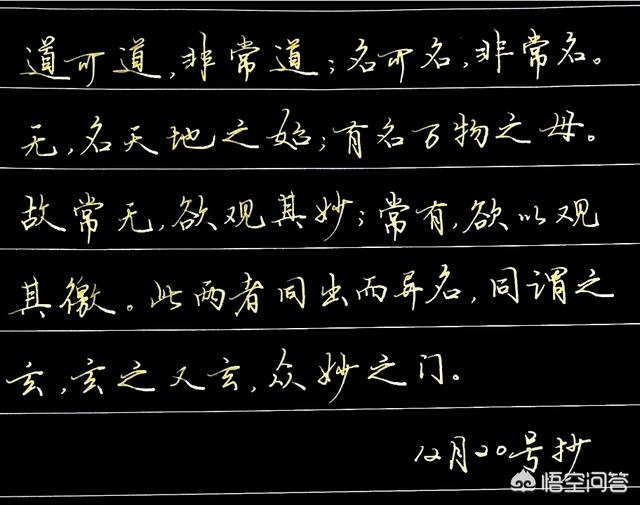 道可道,非常道;名可名,非常名。
无,名天地之始;有名万物之母。
故常无,欲观其妙;常有,欲以观
其徼。此两者同出而异名,同谓之
玄,玄之又玄,众妙之门。
12月20号抄
悟空问答